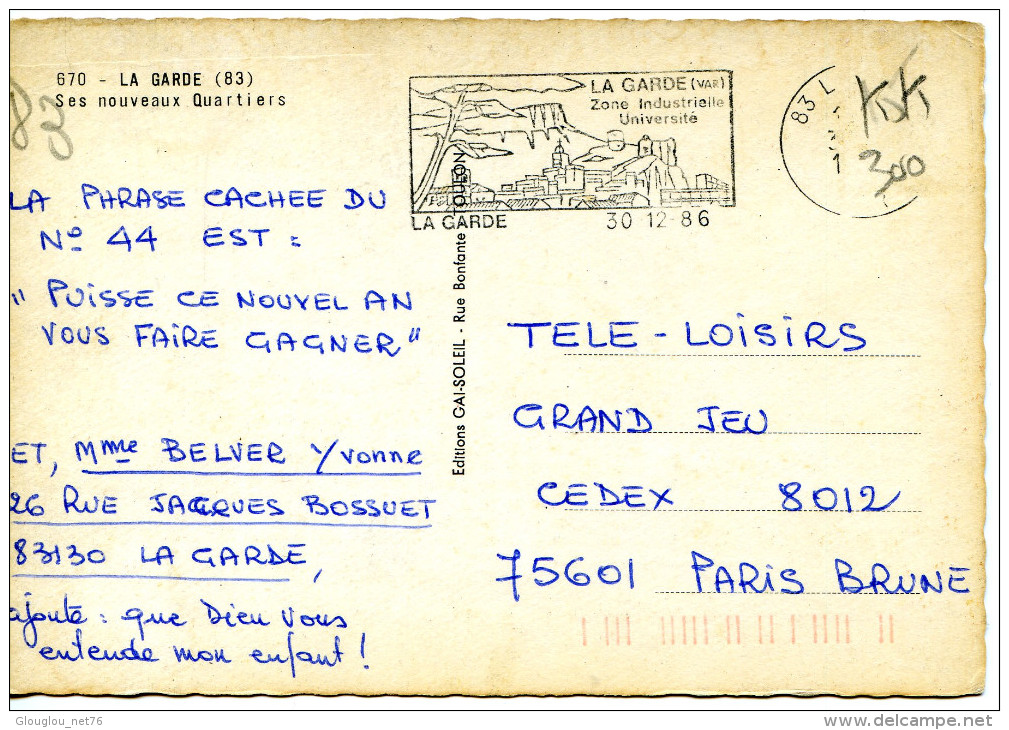 670 - LA GARDE (83)
Ses nouveaux Quartiers
83
LA PHRASE CACHEE DU
Nº 44 EST :
" PUISSE CE NOUVEL AN
VOUS FAIRE GAGNER "
ET, Mme BELVER Yvonne
26 RUE JACQUES BOSSUET
83130 LA GARDE,
ajoute : que Dieu vous
entende mon enfant !
Editions GAI-SOLEIL - Rue Bonfante TOULON
LA GARDE (VAR)
Zone Industrielle
Université
LA GARDE 30-12-86
83 L
300
TELE-LOISIRS
GRAND JEU
CEDEX 8012
75601 PARIS BRUNE
Glouglou_net76
delcampe.net